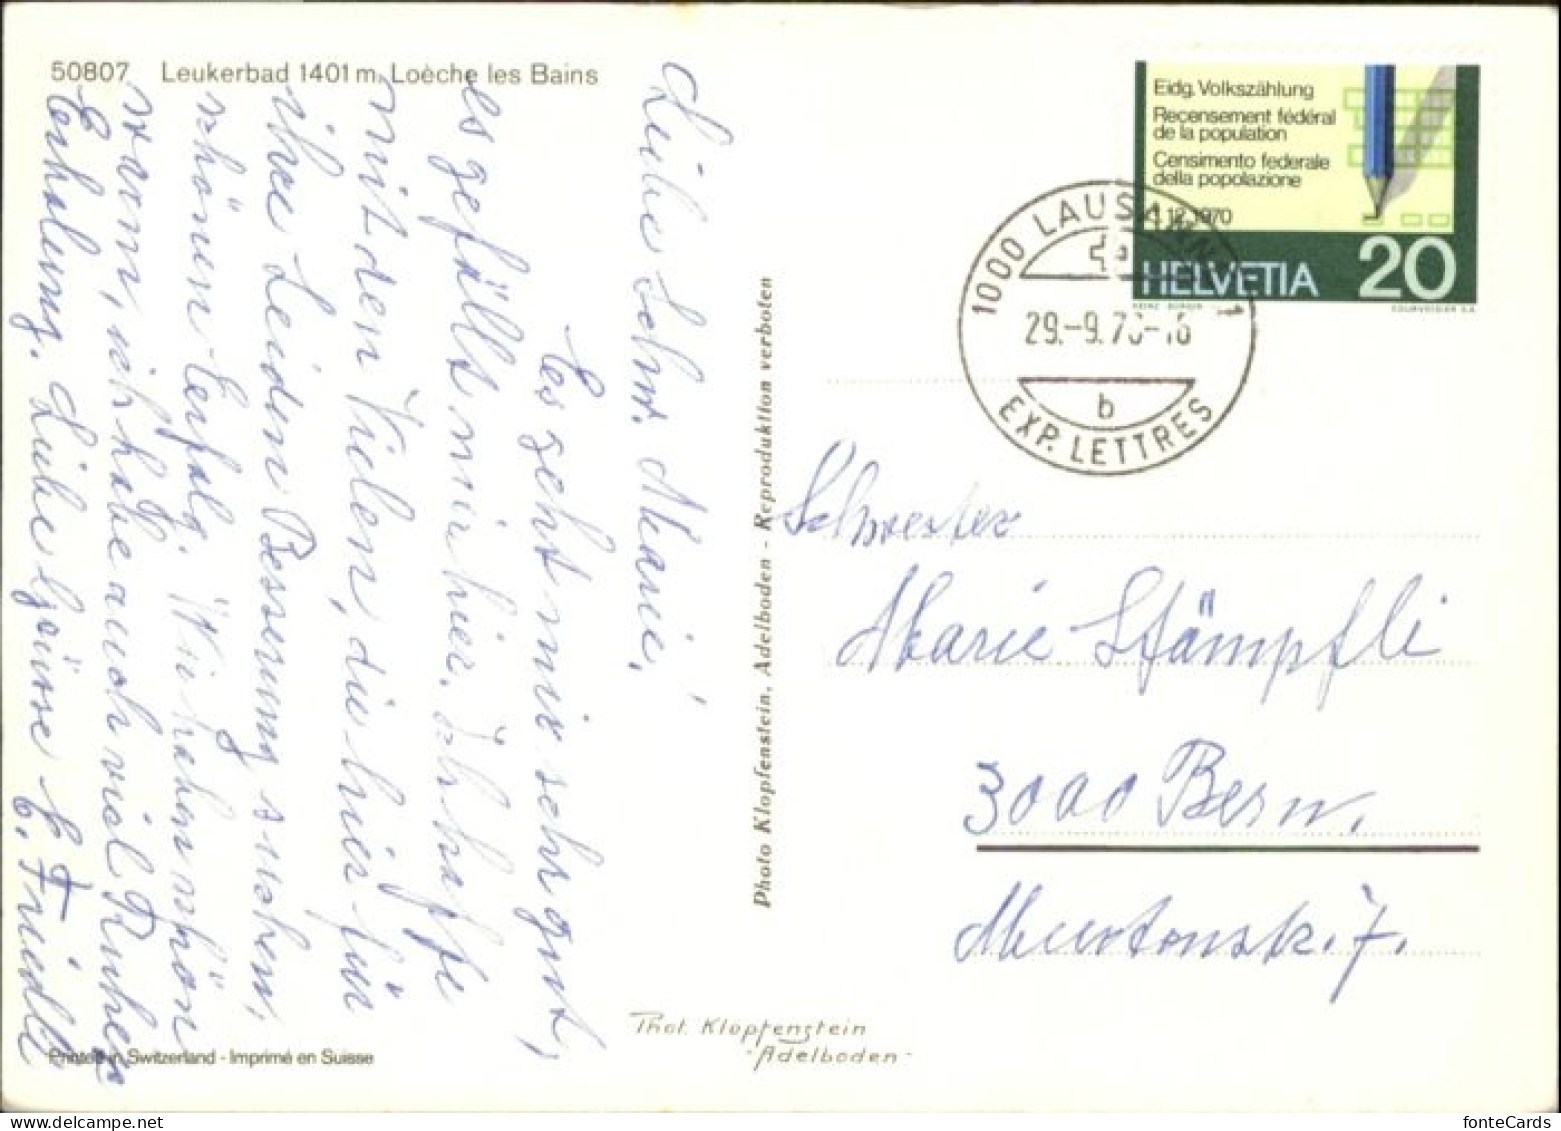 50807 Leukerbad 1401 m Loèche les Bains
Liebe Schw. Marie!
Es geht mir sehr gut,
es gefällt mir hier. Ich hoffe
mit den Vielen, die hier für
ihre Leiden Besserung suchen,
schönen Erfolg. Wir haben schön
warm, ich habe auch viel Ruhe u.
Erholung. Liebe Grüsse E. Friedli
Printed in Switzerland - Imprimé en Suisse
Photo Klopfenstein, Adelboden - Reproduktion verboten
Phot. Klopfenstein
- Adelboden -
Eidg. Volkszählung
Recensement fédéral
de la population
Censimento federale
della popolazione
1.12.1970
HELVETIA 20
COURVOISIER S.A.
1000 LAUSANNE 1
29.-9.70-16
b
EXP. LETTRES
Schwester
Marie Stämpfli
3000 Bern.
Murtenstr. 7.
fonteCards